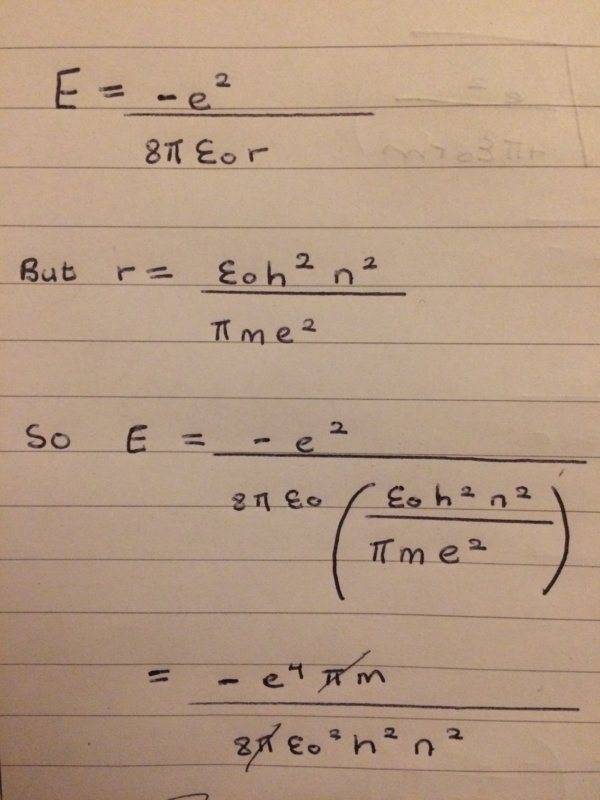 E = -e²
8π ε₀ r
But r = ε₀h² n²
π m e²
So E = - e²
8π ε₀ ( ε₀ h² n²
π m e² )
= - e⁴ π m
8π ε₀² h² n²